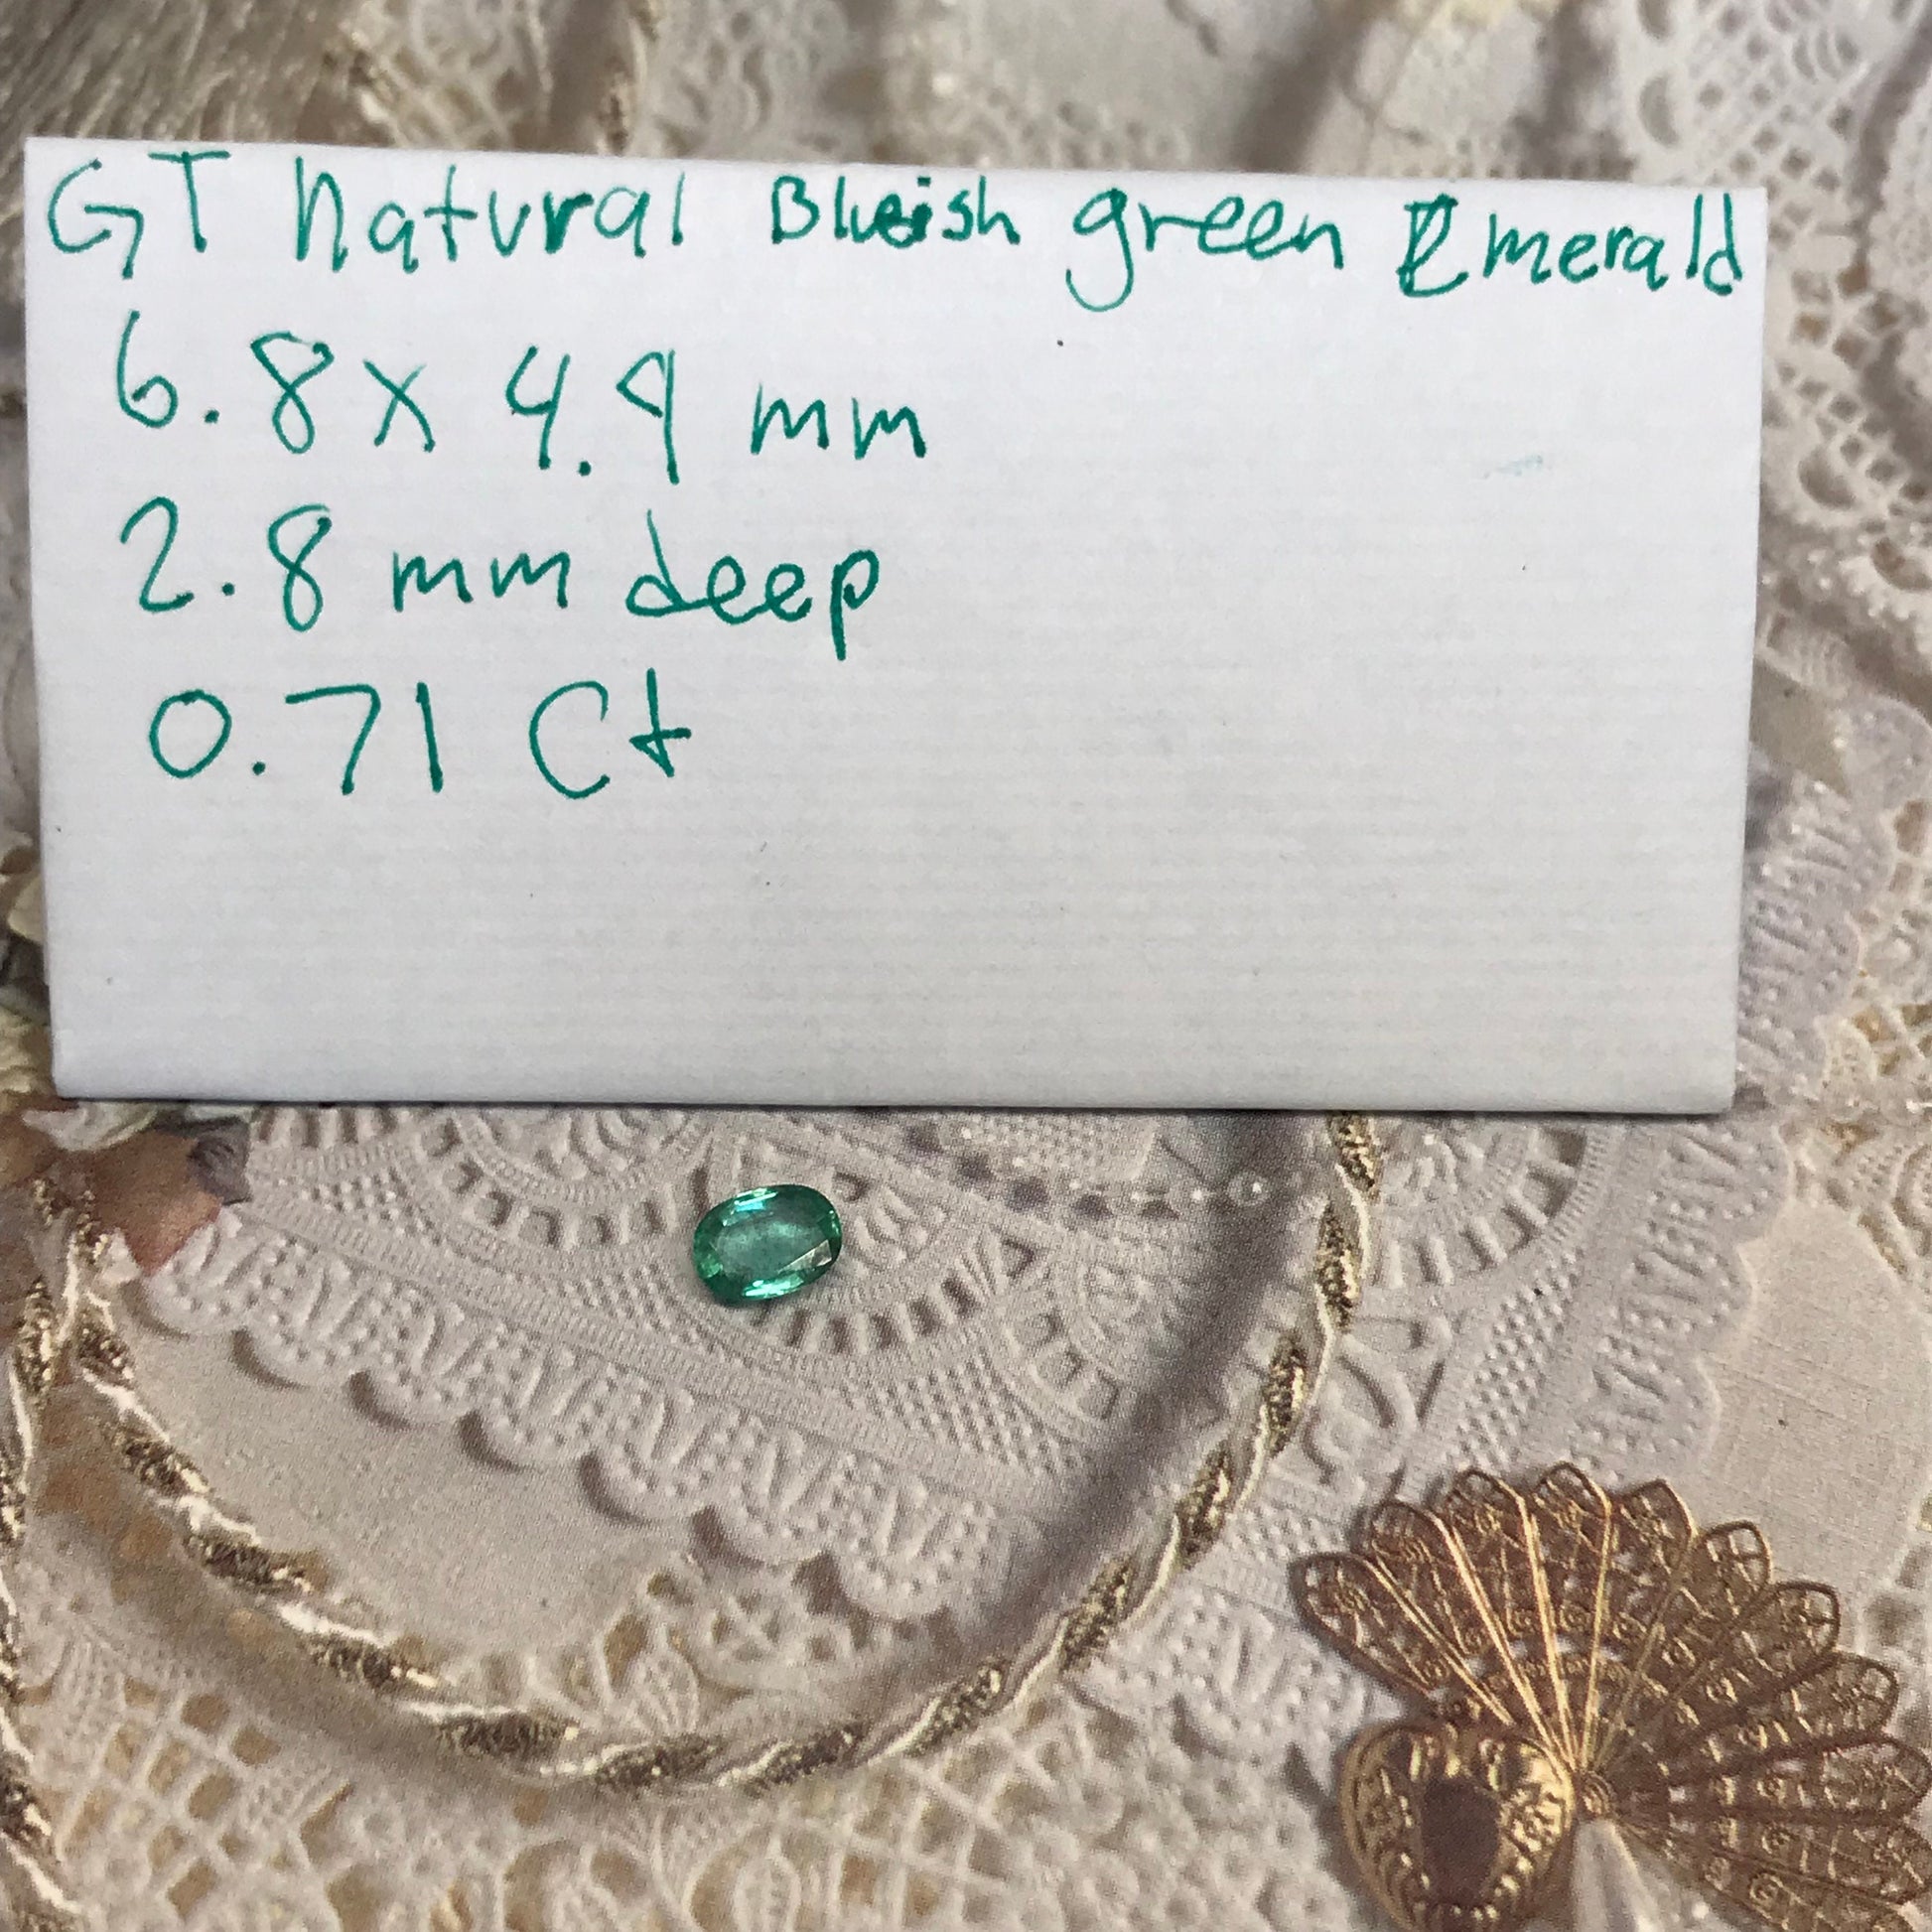 GT Natural Blueish green Emerald
6.8 x 4.9 mm
2.8 mm deep
0.71 Ct